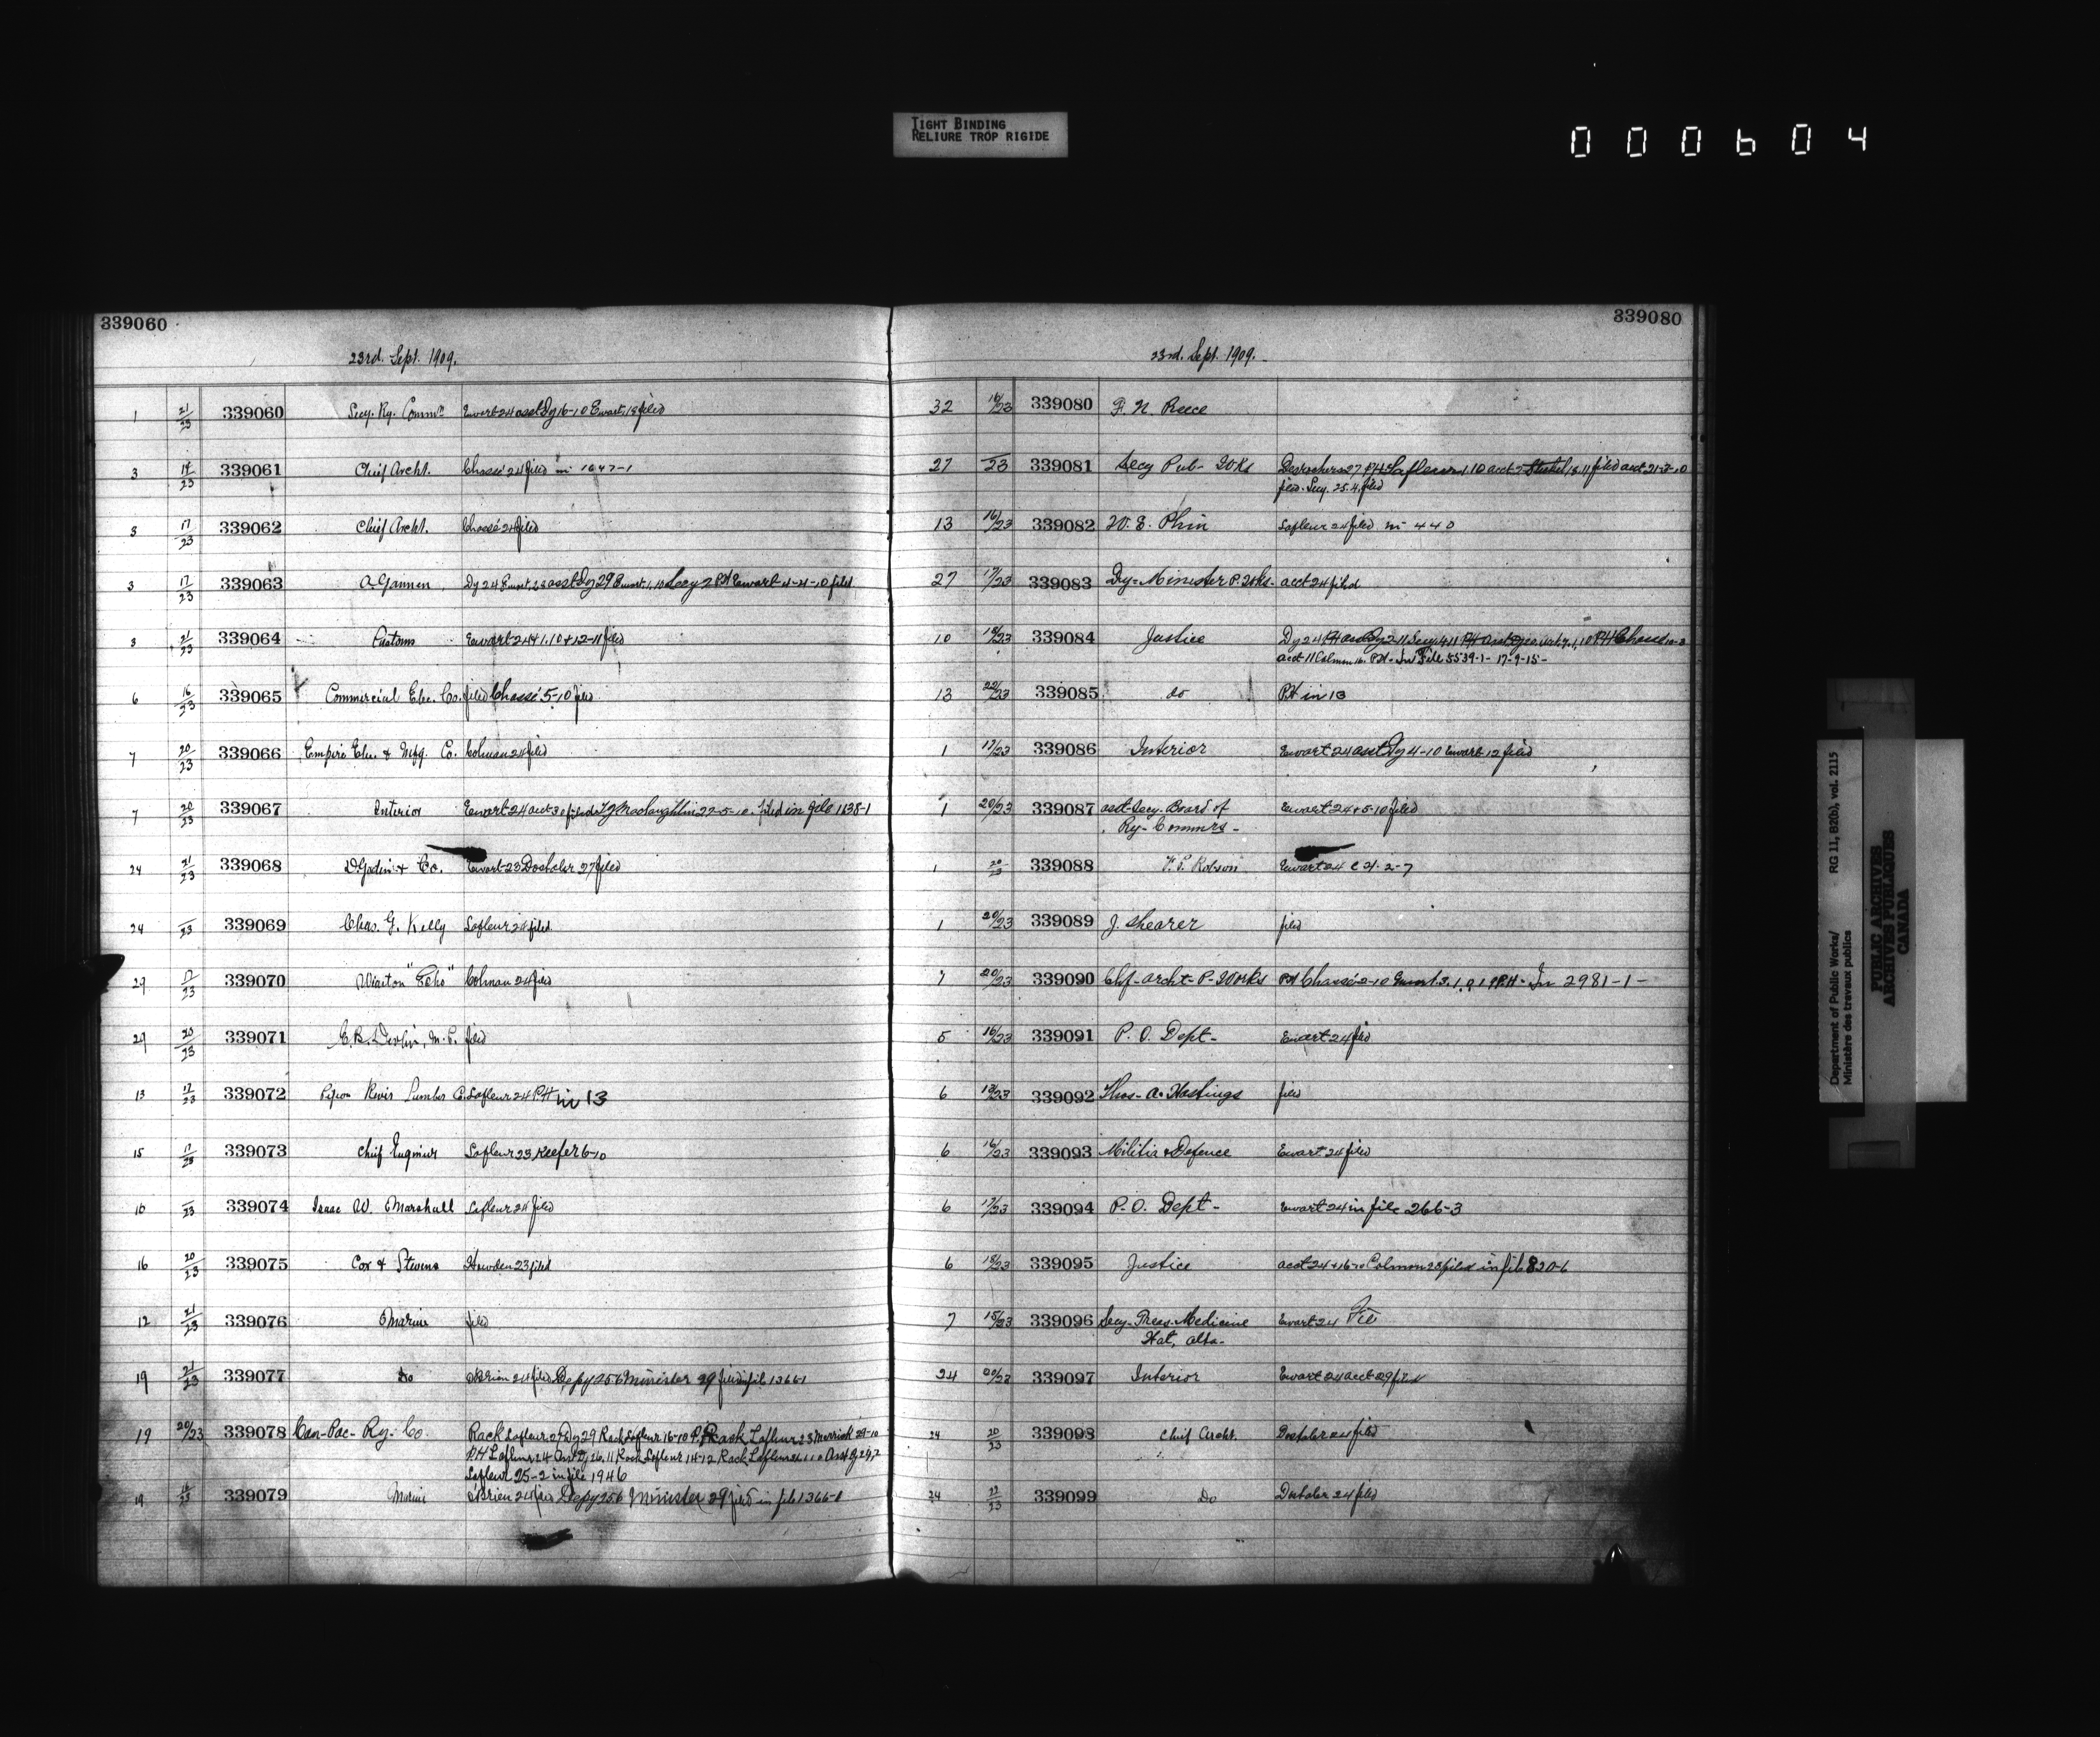 TIGHT BINDING
RELIURE TROP RIGIDE
000604
339060
23rd. Sept. 1909.
1 21/23 339060 Secy. Ry. Commn Ewart 24 asst Dy 16-10 Ewart 18 filed
3 17/23 339061 Chief Archt. Chassé 24 filed in 1647-1
3 17/23 339062 Chief Archt. Chassé 24 filed
3 17/23 339063 Dy 24 Ewart 28 asst Dy 29 Ewart 1.10 Secy 2 PH Ewart 4-4-10 filed
3 21/23 339064 Customs Ewart 24 + 1.10 + 12-11 filed
6 16/23 339065 Commercial Elec. Co. filed Chassé 5-10 filed
7 20/23 339066 Empire Elec. & Mfg. Co. Colman 24 filed
7 20/23 339067 Interior Ewart 24 acct 30 filed Maclaughlin 27-5-10. filed in file 1638-1
24 21/23 339068 Godin & Co. Ewart 23 Dostaler 27 filed
24 —/23 339069 Chas. G. Kelly Lafleur 24 filed
29 17/23 339070 Wiarton "Echo" Colman 24 filed
29 20/23 339071 E. B. Devlin, M.P. filed
13 17/23 339072 Pigeon River Lumber Co. Lafleur 24 PH in 13
15 17/23 339073 Chief Engineer Lafleur 23 Keefer 6-10
16 —/23 339074 Isaac W. Marshall Lafleur 24 filed
16 20/23 339075 Cox & Stevens Howden 23 filed
12 21/23 339076 Marine filed
19 21/23 339077 Do OBrien 24 filed Depy 256 Minister 29 filed in file 1366-1
19 20/23 339078 Can-Pac-Ry-Co Rack Lafleur 27 Dy 29 Rack Lafleur 16-10 Rack Lafleur 23 Merrick 29-10
PH Lafleur 24 Asst Dy 26.11 Rack Lafleur 14-12 Rack Lafleur
Lafleur 25-2 in file 1946
19 18/23 339079 Marine OBrien 24 filed Depy 256 Minister 29 filed in file 1366-1
339080
23rd. Sept. 1909.
32 16/23 339080 F. N. Reece
27 —/23 339081 Secy Pub-Wks Desrochers 27 PH Lafleur 1.10 acct 5 Steckel 18.11 filed acct 21-2-10
filed. Secy. 25.4. filed
13 16/23 339082 W. E. Phin Lafleur 24 filed in 440
27 17/23 339083 Dy-Minister P. Wks- acct 24 filed
10 18/23 339084 Justice Dy 24 PH asst Dy 2-11 Secy 4.11 PH
acct 11 Colman 16. PH-In File 5539-1- 17-9-15-
13 22/23 339085 do PH in 13
1 17/23 339086 Interior Ewart 24 asst Dy 4-10 Ewart 12 filed
1 20/23 339087 asst-Secy. Board of Ewart 24 + 5-10 filed
Ry-Commrs-
1 20/23 339088 Robson Ewart 24 C 21-2-7
1 20/23 339089 J. Shearer filed
7 20/23 339090 Chf-archt-P-Works PH Chassé 2-10 PH-In 2981-1-
5 16/23 339091 P. O. Dept- Ewart 24 filed
6 18/23 339092 Thos-A. Hastings filed
6 16/23 339093 Militia & Defence Ewart 24 filed
6 17/23 339094 P-O. Dept- Ewart 24 in file 266-3
6 18/23 339095 Justice acct 24 + 16-10 Colman 28 filed in file 820-6
7 15/23 339096 Secy-Treas-Medicine Ewart 24
Hat, alta-
24 22/23 339097 Interior Ewart 24 acct 29 filed
24 20/23 339098 Chief Archt. Dostaler 24 filed
24 22/23 339099 Do Dostaler 24 filed
Department of Public Works/
Ministère des travaux publics
RG 11, B2(b), vol. 2115
PUBLIC ARCHIVES
ARCHIVES PUBLIQUES
CANADA